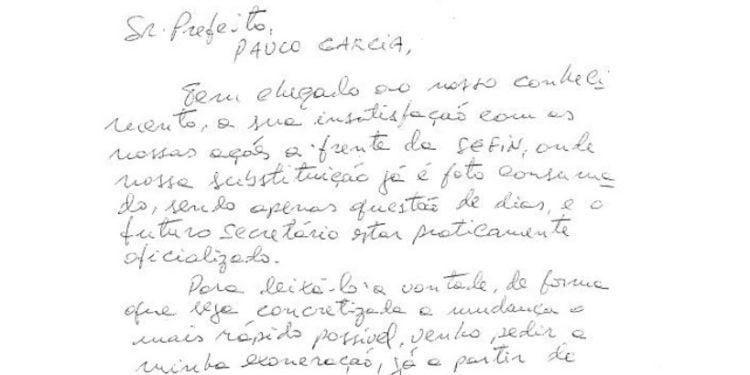 Sr. Prefeito,
PAULO GARCIA,
Tem chegado ao nosso conheci
mento, a sua insatisfação com as
nossas ações a frente da SEFIN, onde
nossa substituição já é foto consuma
do, sendo apenas questão de dias, e o
futuro Secretário estar praticamente
oficializado.
Para deixá-lo a vontade, de forma
que seja concretizada a mudança o
mais rápido possível, venho, pedir a
minha exoneração, já a partir de